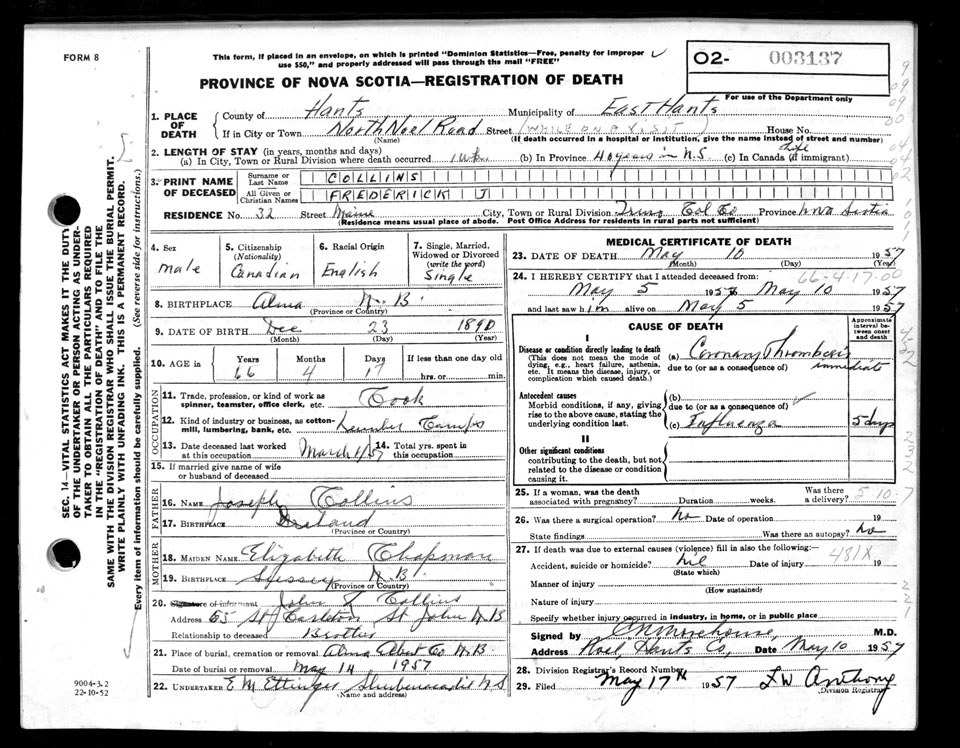 FORM 8
This form, if placed in an envelope, on which is printed "Dominion Statistics—Free, penalty for improper
use $50," and properly addressed will pass through the mail "FREE"
02- 003137
For use of the Department only
PROVINCE OF NOVA SCOTIA—REGISTRATION OF DEATH
1. PLACE OF DEATH
County of Hants Municipality of East Hants
If in City or Town North Noel Road Street (WHILE ON A VISIT) House No.
(Name) (If death occurred in a hospital or institution, give the name instead of street and number)
2. LENGTH OF STAY (in years, months and days)
(a) In City, Town or Rural Division where death occurred 1 wk. (b) In Province 40 years in N.S. (c) In Canada (if immigrant) Life
3. PRINT NAME OF DECEASED
Surname or Last Name COLLINS
All Given or Christian Names FREDERICK J
RESIDENCE No. 32 Street Maine City, Town or Rural Division Truro Col Co Province Nova Scotia
(Residence means usual place of abode. Post Office Address for residents in rural parts not sufficient)
4. Sex male
5. Citizenship (Nationality) Canadian
6. Racial Origin English
7. Single, Married, Widowed or Divorced (write the word) Single
8. BIRTHPLACE Alma N.B.
(Province or Country)
9. DATE OF BIRTH Dec 23 1890
(Month) (Day) (Year)
10. AGE in Years 66 Months 4 Days 17 If less than one day old hrs. or min.
OCCUPATION
11. Trade, profession, or kind of work as spinner, teamster, office clerk, etc. Cook
12. Kind of industry or business, as cotton-mill, lumbering, bank, etc. Lumber Camps
13. Date deceased last worked at this occupation March 1/57 14. Total yrs. spent in this occupation
15. If married give name of wife or husband of deceased
FATHER
16. NAME Joseph Collins
17. BIRTHPLACE Ireland
(Province or Country)
MOTHER
18. MAIDEN NAME Elizabeth Chapman
19. BIRTHPLACE Sussex N.B.
(Province or Country)
20. Signature of informant John J Collins
Address 65 St Carleton St John N B
Relationship to deceased Brother
21. Place of burial, cremation or removal Alma Albert Co N.B.
Date of burial or removal May 14 1957
22. UNDERTAKER E M Ettinger Shubenacadie N S
(Name and address)
MEDICAL CERTIFICATE OF DEATH
23. DATE OF DEATH May 10 1957
(Month) (Day) (Year)
66-4-17-00
24. I HEREBY CERTIFY that I attended deceased from:
May 5 1957 to May 10 1957
and last saw him alive on May 5 1957
CAUSE OF DEATH
Approximate interval between onset and death
I
Disease or condition directly leading to death
(This does not mean the mode of dying, e.g., heart failure, asthenia, etc. It means the disease, injury, or complication which caused death.)
(a) Coronary Thrombosis immediate
due to (or as a consequence of)
Antecedent causes
Morbid conditions, if any, giving rise to the above cause, stating the underlying condition last.
(b)
due to (or as a consequence of)
(c) Influenza 5 days
II
Other significant conditions
contributing to the death, but not related to the disease or condition causing it.
25. If a woman, was the death associated with pregnancy? Duration weeks. Was there a delivery?
26. Was there a surgical operation? No Date of operation 19
State findings Was there an autopsy? No
27. If death was due to external causes (violence) fill in also the following:— 481X
Accident, suicide or homicide? nil Date of injury 19
(State which)
Manner of injury
(How sustained)
Nature of injury
Specify whether injury occurred in industry, in home, or in public place
Signed by Morehouse, M.D.
Address Noel, Hants Co, Date May 10 1957
28. Division Registrar's Record Number
29. Filed May 17th 1957 L W Anthony
Division Registrar
SEC. 14—VITAL STATISTICS ACT MAKES IT THE DUTY
OF THE UNDERTAKER OR PERSON ACTING AS UNDER-
TAKER TO OBTAIN ALL THE PARTICULARS REQUIRED
IN THE "REGISTRATION OF DEATH" AND TO FILE THE
SAME WITH THE DIVISION REGISTRAR WHO SHALL ISSUE THE BURIAL PERMIT.
WRITE PLAINLY WITH UNFADING INK. THIS IS A PERMANENT RECORD.
Every item of information should be carefully supplied. (See reverse side for instructions.)
9004-3.2
22-10-52